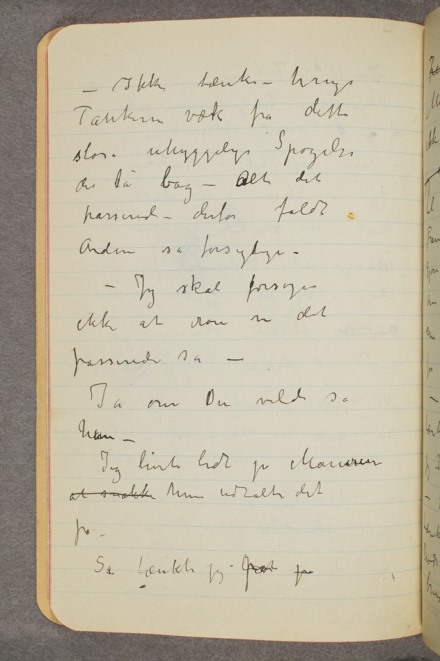 – Ikke tænke – bringe
Tankerne væk fra dette
store uhyggelige Spøgelse
der lå bag – Alt det
passerede – derfor faldt
Ordene så forsigtige –
– Jeg skal forsøge
ikke at røre ved det
passerede så –
Ja om Du vilde så
han –
Jeg lidt på
at snakke hun udtalte det
på –
Så tænkte jeg på